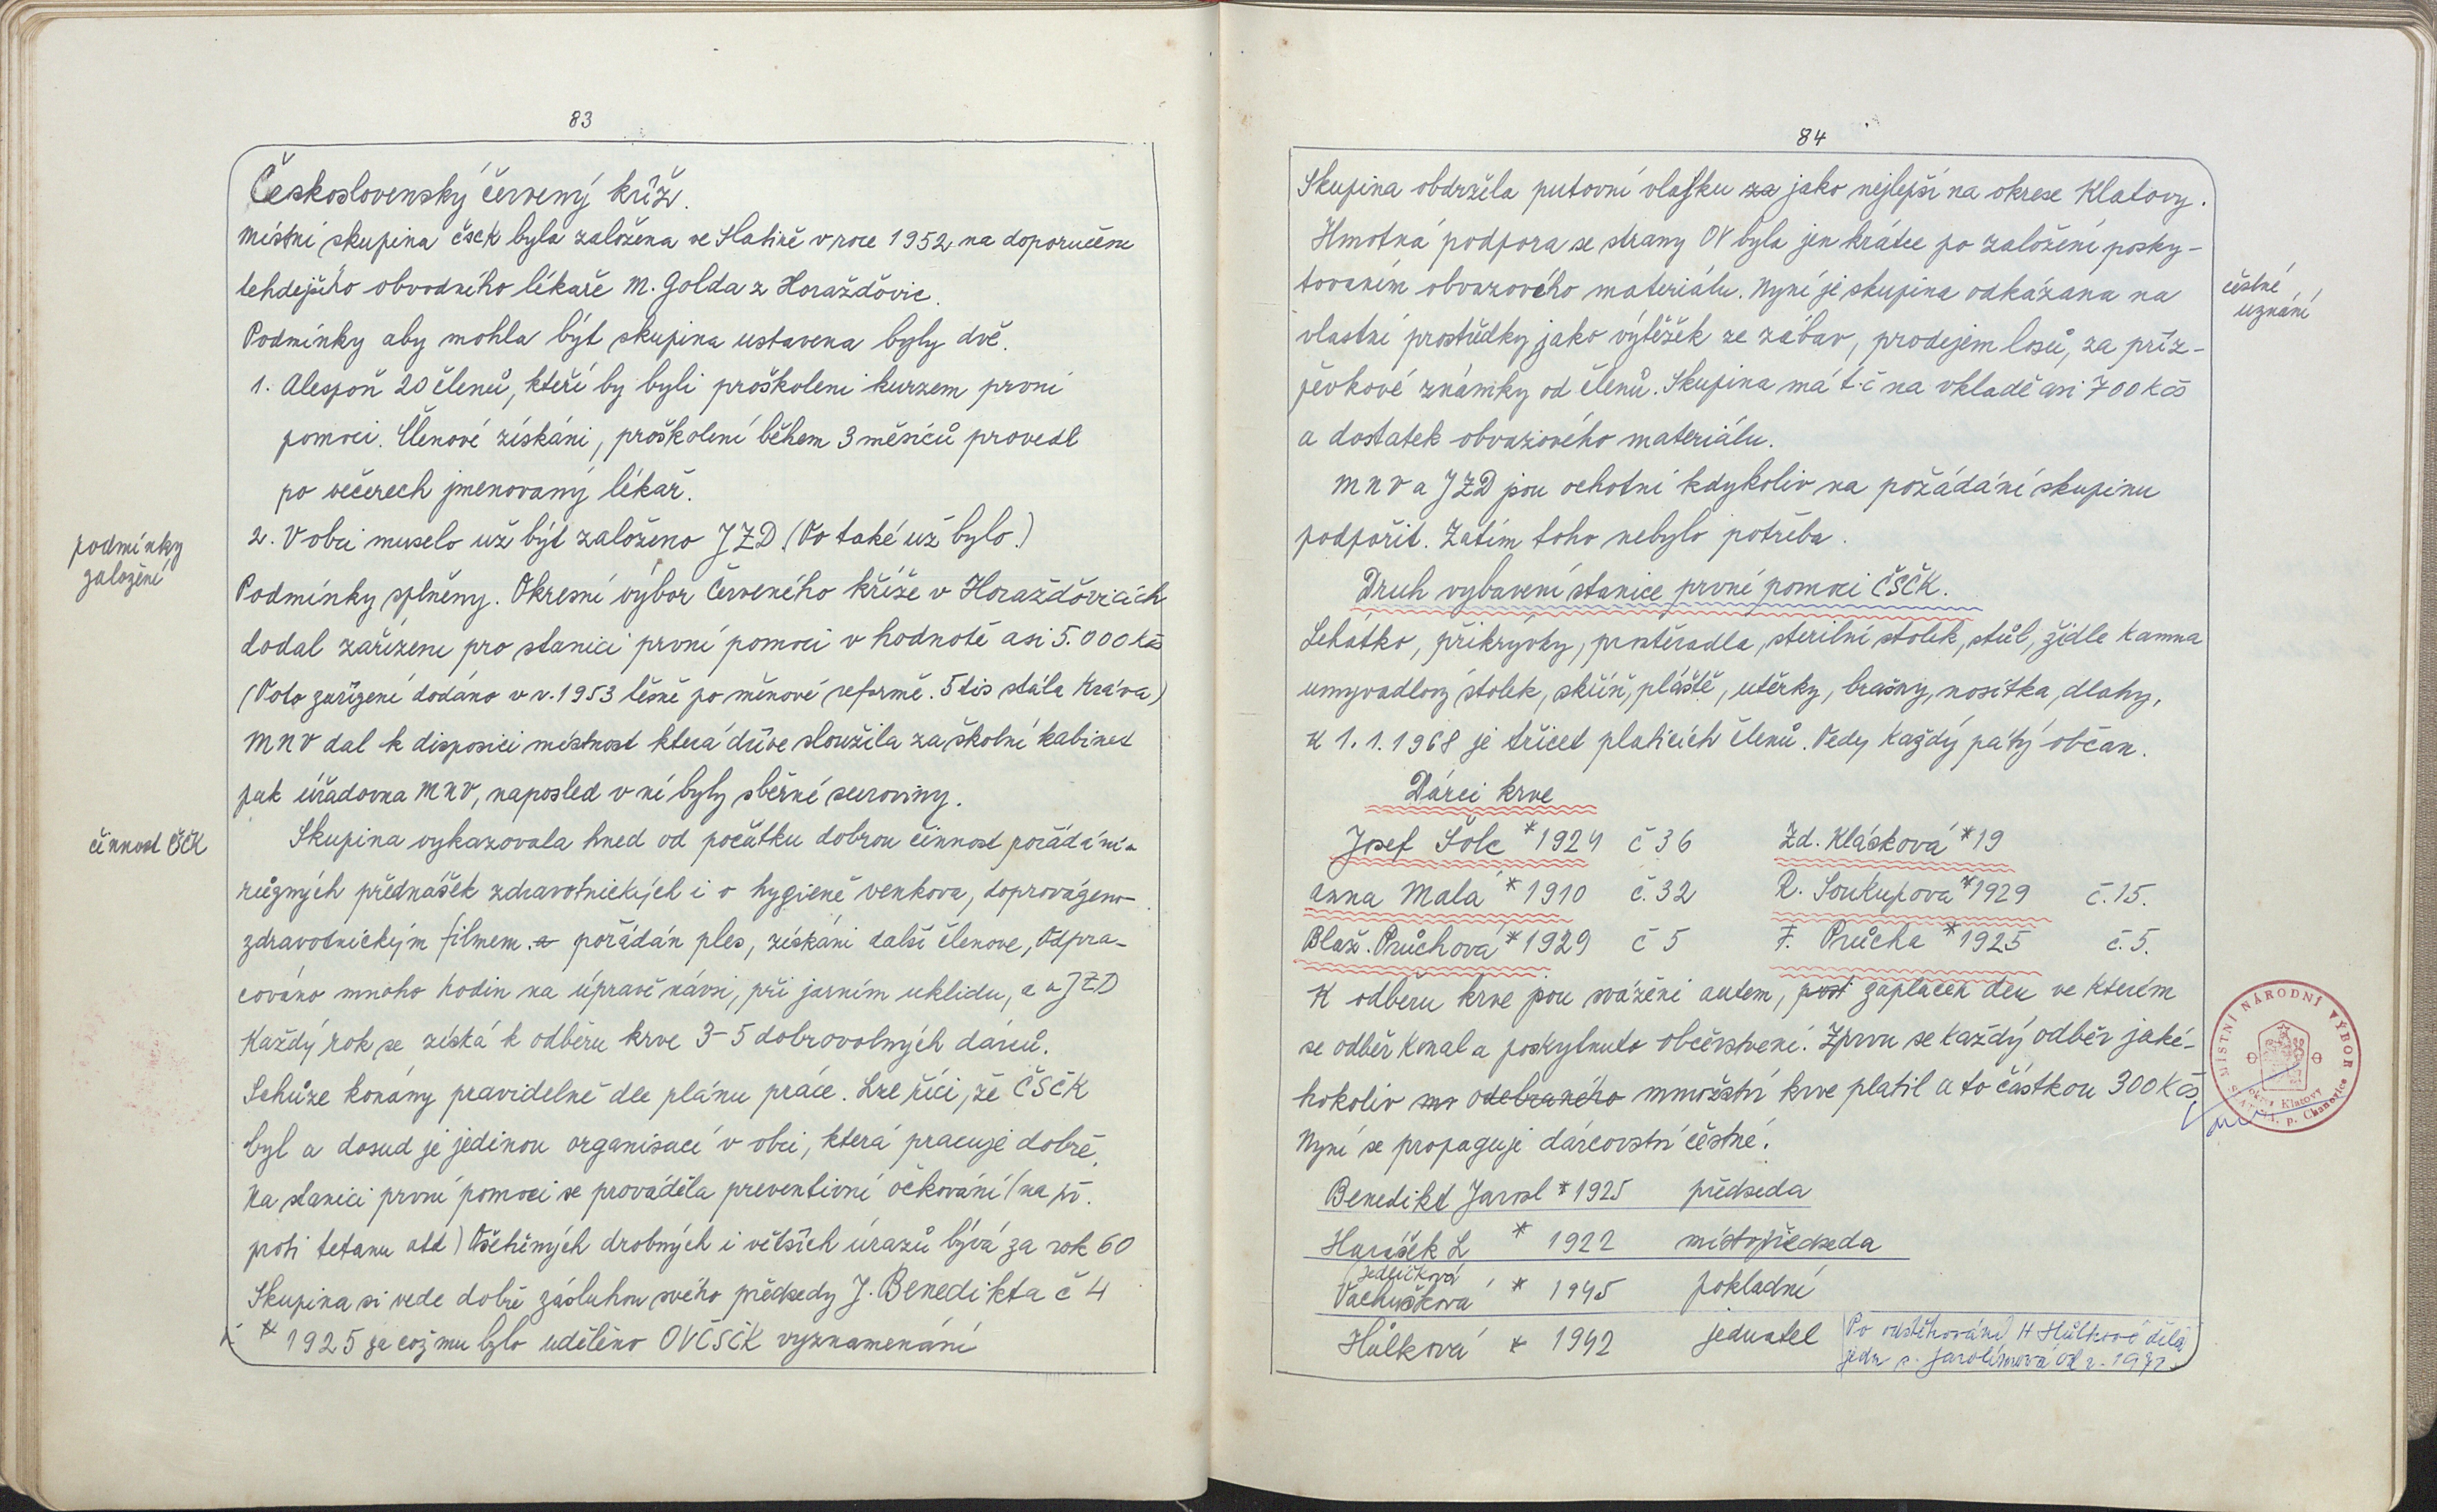 83
Československý červený kříž.
Místní skupina čsčK byla založena ve Slatině v roce 1952 na doporučení
tehdejšího obvodního lékaře M. Golda z Horažďovic.
Podmínky aby mohla být skupina ustavena byly dvě.
1. Alespoň 20 členů, kteří by byli proškoleni kurzem první
pomoci. Členové získáni, proškolení během 3 měsíců provedl
po večerech jmenovaný lékař.
podmínky
založení
2. V obci muselo už být založeno JZD. (To také už bylo.)
Podmínky splněny. Okresní výbor Červeného kříže v Horažďovicích
dodal zařízení pro stanici první pomoci v hodnotě asi 5.000 Kčs
(Toto zařízení dodáno v r. 1953 těsně po měnové reformě. 5 tis stála kráva)
MNV dal k disposici místnost která dříve sloužila za školní kabinet
pak úřadovna MNV, naposled v ní byly sběrné suroviny.
činnost ČSČK
Skupina vykazovala hned od počátku dobrou činnost pořádání
různých přednášek zdravotnických i o hygieně venkova, doprovázeno
zdravotnickým filmem. a pořádán ples, získáni další členove, Odpra-
cováno mnoho hodin na úpravě návsi, při jarním uklidu, a v JZD
Každý rok se získá k odběru krve 3-5 dobrovolných dárců.
Schůze konány pravidelně dle plánu práce. Lze říci, že ČSČK
byl a dosud je jedinou organisací v obci, která pracuje dobře.
Na stanici první pomoci se prováděla preventivní očkování (na př.
proti tetanu atd) Ošetřených drobných i větších úrazů bývá za rok 60
Skupina si vede dobře zásluhou svého předsedy J. Benedikta č 4
* 1925 za což mu bylo uděleno OVČSČK vyznamenání
84
Skupina obdržela putovní vlajku za jako nejlepší na okrese Klatovy.
Hmotná podpora se strany OV byla jen krátce po založení posky-
tovaním obvazového materiálu. Nyní je skupina odkázana na
čestné
uznání
vlastní prostředky jako výtěžek ze zábav, prodejem losů, za příz-
pěvkové známky od členů. Skupina má t.č na vkladě asi 700 Kčs
a dostatek obvazového materiálu.
MNV a JZD jsou ochotni kdykoliv na požádání skupinu
podpořit. Zatím toho nebylo potřeba.
Druh vybavení stanice první pomoci ČSČK.
Lehátko, přikrývky, prostěradla, sterilní stolek, stůl, židle kamna
umyvadlový stolek, skříň, pláště, utěrky, brašny, nosítka, dlahy,
K 1.1.1968 je třicet platících členů. Tedy každý pátý občan.
Dárci krve
Josef Šolc *1924 č 36 Zd. Klásková *19
Anna Malá *1910 č. 32 R. Soukupová *1929 č. 15.
Blaž. Průchová *1929 č 5 F. Průcha *1925 č. 5.
K odběru krve jsou sváženi autem, zaplacen den ve kterém
se odběr konal a poskytnuto občerstvení. Zprvu se každý odběr jaké-
hokoliv odebraného množství krve platil a to částkou 300 Kčs
Nyní se propaguje dárcovství čěstné.
MÍSTNÍ NÁRODNÍ VÝBOR
okres Klatovy
p. Chanovice
Benedikt Jarosl *1925 předseda
Harášek L * 1922 místopředseda
Jedličková
Vachušková * 1945 pokladní
Hůlková * 1942 jednatel
Po odstěhování H Hůlkové dělá
jedn s. Jarolímová od r. 1971.